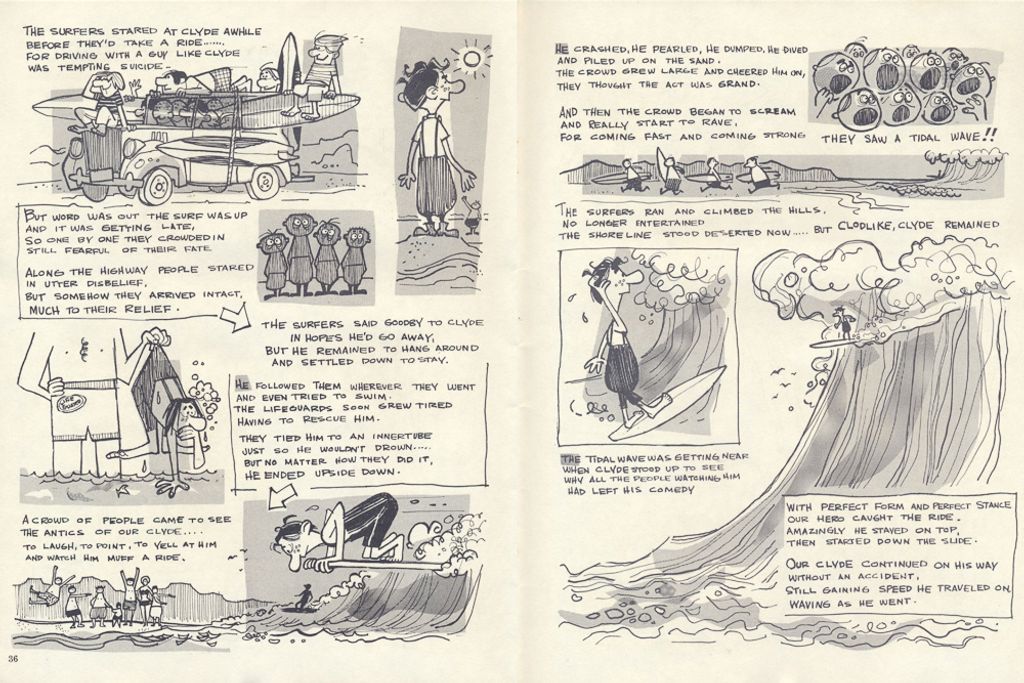 THE SURFERS STARED AT CLYDE AWHILE
BEFORE THEY'D TAKE A RIDE.......
FOR DRIVING WITH A GUY LIKE CLYDE
WAS TEMPTING SUICIDE-
BUT WORD WAS OUT THE SURF WAS UP
AND IT WAS GETTING LATE,
SO ONE BY ONE THEY CROWDED IN
STILL FEARFUL OF THEIR FATE
ALONG THE HIGHWAY PEOPLE STARED
IN UTTER DISBELIEF,
BUT SOMEHOW THEY ARRIVED INTACT,
MUCH TO THEIR RELIEF.
THE SURFERS SAID GOODBY TO CLYDE
IN HOPES HE'D GO AWAY,
BUT HE REMAINED TO HANG AROUND
AND SETTLED DOWN TO STAY.
HE FOLLOWED THEM WHEREVER THEY WENT
AND EVEN TRIED TO SWIM.
THE LIFEGUARDS SOON GREW TIRED
HAVING TO RESCUE HIM.
THEY TIED HIM TO AN INNERTUBE
JUST SO HE WOULDN'T DROWN.....
BUT NO MATTER HOW THEY DID IT,
HE ENDED UPSIDE DOWN.
A CROWD OF PEOPLE CAME TO SEE
THE ANTICS OF OUR CLYDE....
TO LAUGH, TO POINT, TO YELL AT HIM
AND WATCH HIM MUFF A RIDE.
36
HE CRASHED, HE PEARLED, HE DUMPED, HE DIVED
AND PILED UP ON THE SAND.
THE CROWD GREW LARGE AND CHEERED HIM ON,
THEY THOUGHT THE ACT WAS GRAND.
AND THEN THE CROWD BEGAN TO SCREAM
AND REALLY START TO RAVE,
FOR COMING FAST AND COMING STRONG
THEY SAW A TIDAL WAVE!!
THE SURFERS RAN AND CLIMBED THE HILLS,
NO LONGER ENTERTAINED
THE SHORELINE STOOD DESERTED NOW..... BUT CLODLIKE, CLYDE REMAINED
THE TIDAL WAVE WAS GETTING NEAR
WHEN CLYDE STOOD UP TO SEE
WHY ALL THE PEOPLE WATCHING HIM
HAD LEFT HIS COMEDY
WITH PERFECT FORM AND PERFECT STANCE
OUR HERO CAUGHT THE RIDE.
AMAZINGLY HE STAYED ON TOP,
THEN STARTED DOWN THE SLIDE.
OUR CLYDE CONTINUED ON HIS WAY
WITHOUT AN ACCIDENT,
STILL GAINING SPEED HE TRAVELED ON
WAVING AS HE WENT.